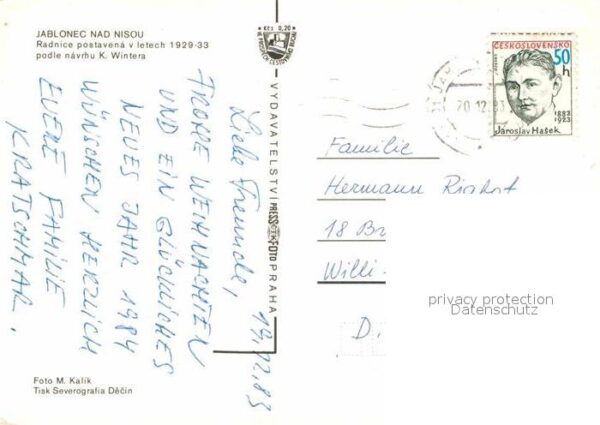 JABLONEC NAD NISOU
Radnice postavená v letech 1929-33
podle návrhu K. Wintera
Kčs 0,20
VYDAVATELSTVÍ PRESSFOTO PRAHA
ČESKOSLOVENSKO
50
h
1883
1923
Jaroslav Hašek
20.12.83
19.12.83
Liebe Freunde,
FROHE WEIHNACHTEN
UND EIN GLÜCKLICHES
NEUES JAHR 1984
WÜNSCHEN HERZLICH
EUERE FAMILIE
KRATSCHMAR.
Familie
Hermann
18 Br
Willi
D.
privacy protection
Datenschutz
Foto M. Kalík
Tisk Severografia Děčín